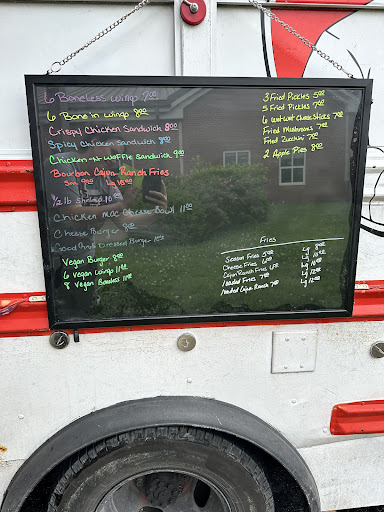 6 Boneless wings 7.00
6 Bone in wings 8.00
Crispy Chicken Sandwich 8.00
Spicy Chicken Sandwich 8.00
Chicken-N-Waffle Sandwich 9.00
Bourbon Cajun Ranch Fries
Sm. 9.00 Lg 15.00
1/2 lb Shrimp 10
Chicken Mac Cheese Bowl 11.00
Cheese Burger
Dressed Burger
Vegan Burger 8.00
6 vegan wings 11.00
8 Vegan Boneless 11.00
3 Fried Pickles 5.00
5 Fried Pickles 7.00
6 Cheese Sticks 7.00
Fried Mushrooms 7.00
Fried Zucchini 7.00
2 Apple Pies 8.00
Fries
Season Fries 5.00 Lg 8.00
Cheese Fries 6.00 Lg 10.00
Cajun Ranch Fries 6.00 Lg
Loaded Fries 7.00 Lg 12.00
Loaded Cajun Ranch 7.00 Lg 12.00